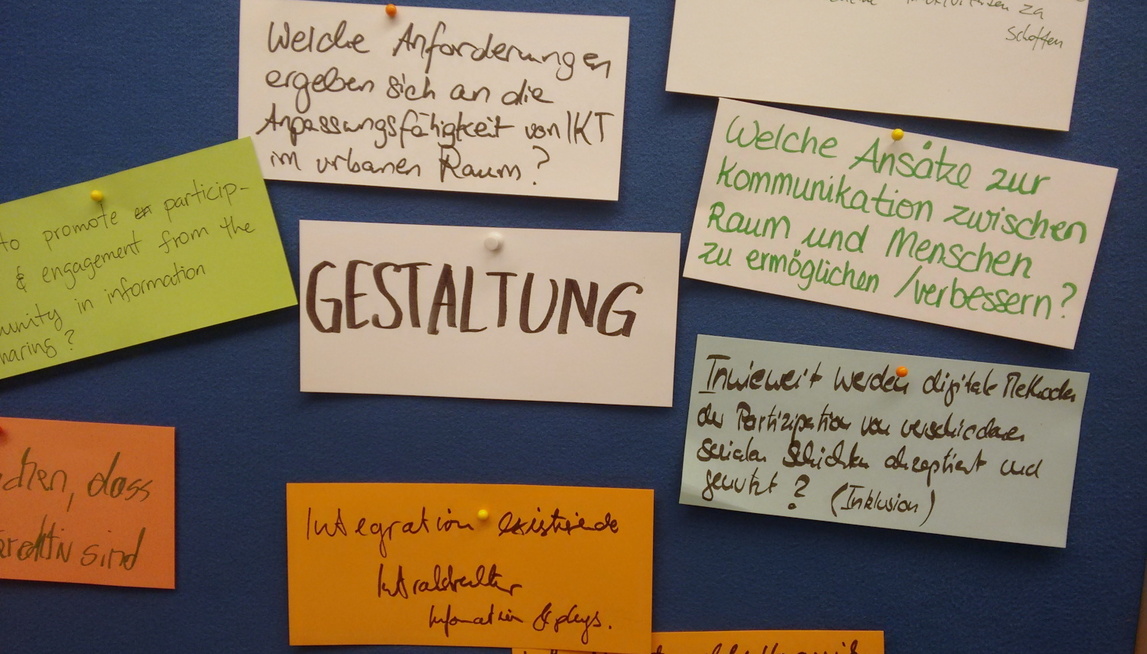 Welche Anforderungen
ergeben sich an die
Anpassungsfähigkeit von IKT
im urbanen Raum?
zu
schaffen
Welche Ansätze zur
Kommunikation zwischen
Raum und Menschen
zu ermöglichen /verbessern?
to promote particip-
& engagement from the
unity in information
haring?
GESTALTUNG
Inwieweit werden digitale Methoden
der Partizipation von verschiedenen
sozialen Schichten akzeptiert und
genutzt? (Inklusion)
dass
sind
Integration existierende
Information